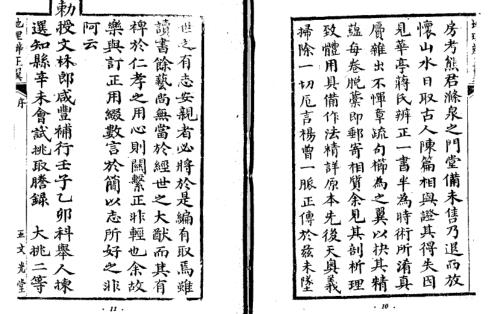 房考熊君滌泉之門堂備未售乃退而放
懷山水日取古人陳篇相與證其得失因
見華亭蔣氏辨正一書半為時術所淆真
贋雜出不憚章疏句櫛為之翼以抉其精
蘊每卷脫藁即郵寄相質余見其剖析理
致體用具備作法精詳原本先後天奧義
掃除一切卮言楊曾一脈正傳於兹未墜
· 10 ·
世之有志安親者必將於是編有取焉雖
讀書餘藝尚無當於經世之大猷而其有
裨於仁孝之用心則關繫正非輕也余故
樂與訂正用綴數言於簡以志所好之非
阿云
勅授文林郎咸豐補行壬子乙卯科舉人揀
選知縣辛未會試挑取謄錄 大挑二等
地理辨正翼 序 五 文光堂
· 11 ·